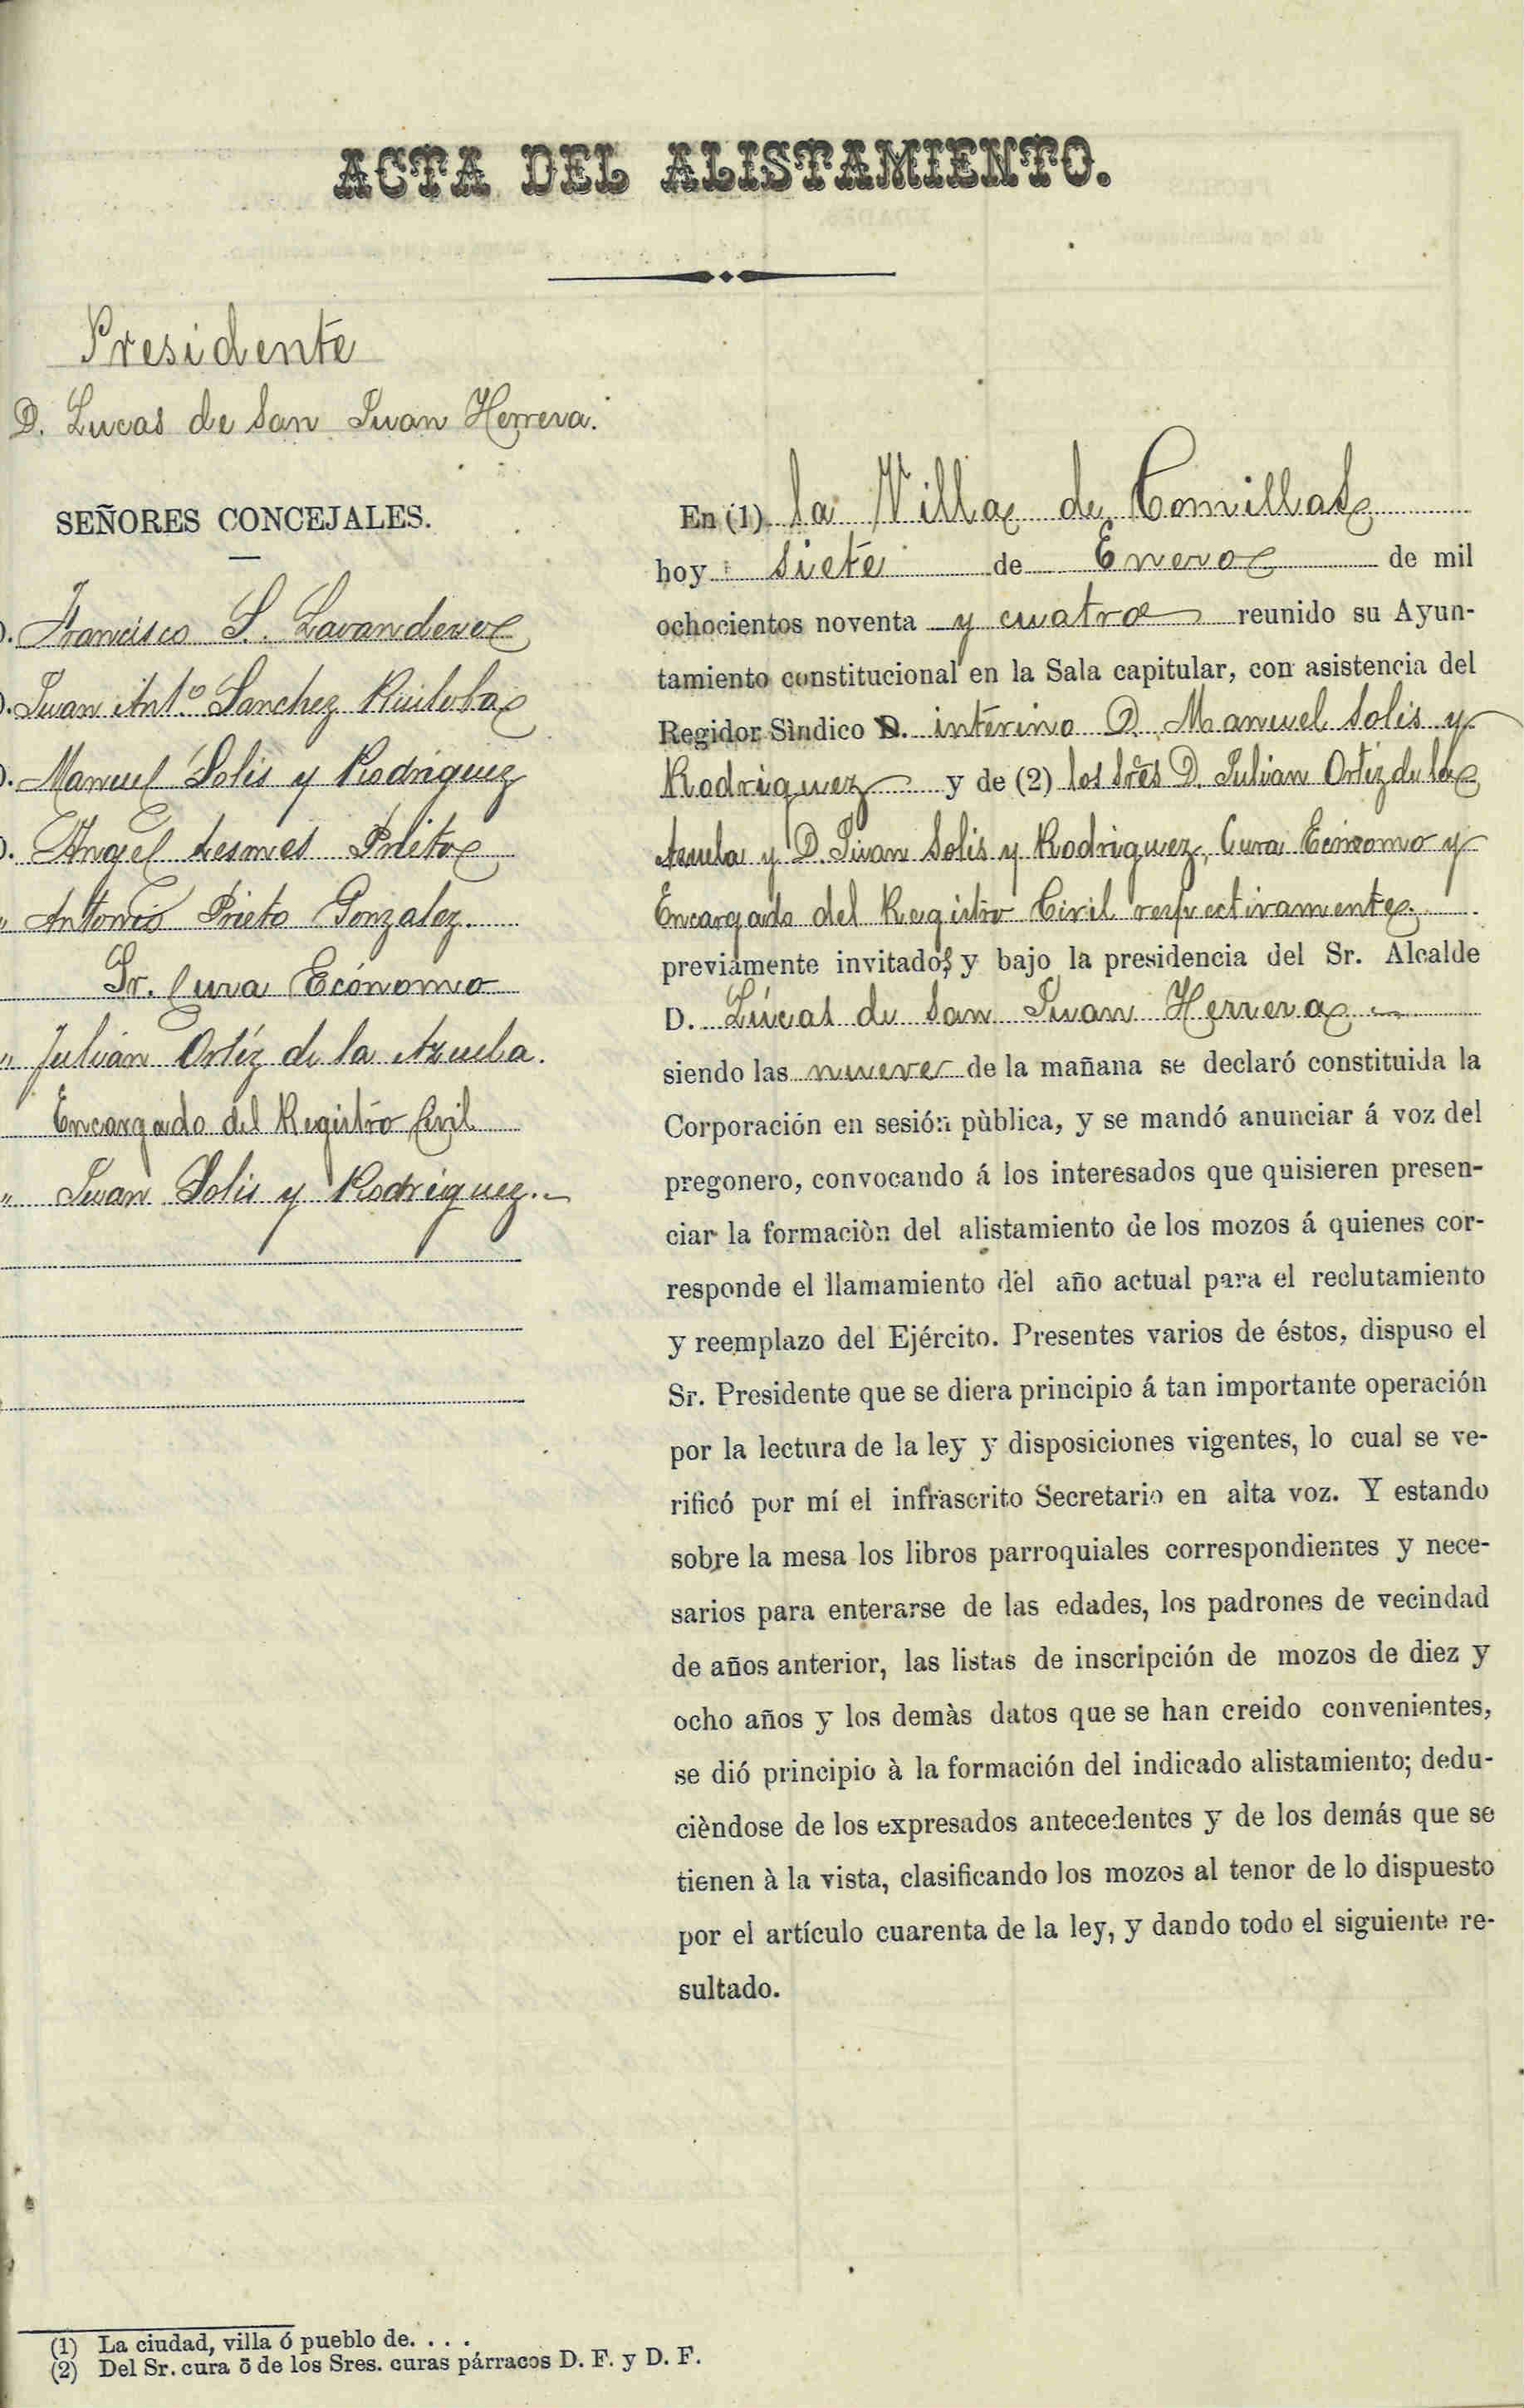 ACTA DEL ALISTAMIENTO.
Presidente
D. Lucas de San Juan Herrera.
SEÑORES CONCEJALES.
D. Francisco S. Lavandera
D. Juan Antº Sanchez Ruiloba
D. Manuel Solis y Rodriguez
D. Angel Lesmes Prieto
" Antonio Prieto Gonzalez.
Sr. Cura Ecónomo
" Julián Ortíz de la Azuela.
Encargado del Registro Civil
" Juan Solis y Rodriguez.
En (1) la Villa de Comillas
hoy siete de Enero de mil
ochocientos noventa y cuatro reunido su Ayun-
tamiento constitucional en la Sala capitular, con asistencia del
Regidor Sìndico D. interino D. Manuel Solis y
Rodriguez y de (2) los Sres D. Julian Ortiz de la
Azuela y D. Juan Solis y Rodriguez, Cura Ecónomo y
Encargado del Registro Civil respectivamente
previamente invitados y bajo la presidencia del Sr. Alcalde
D. Lúcas de San Juan Herrera
siendo las nueve de la mañana se declaró constituida la
Corporación en sesión pùblica, y se mandó anunciar á voz del
pregonero, convocando á los interesados que quisieren presen-
ciar la formaciòn del alistamiento de los mozos á quienes cor-
responde el llamamiento del año actual para el reclutamiento
y reemplazo del Ejército. Presentes varios de éstos, dispuso el
Sr. Presidente que se diera principio á tan importante operación
por la lectura de la ley y disposiciones vigentes, lo cual se ve-
rificó por mí el infrascrito Secretario en alta voz. Y estando
sobre la mesa los libros parroquiales correspondientes y nece-
sarios para enterarse de las edades, los padrones de vecindad
de años anterior, las listas de inscripción de mozos de diez y
ocho años y los demàs datos que se han creido convenientes,
se dió principio à la formación del indicado alistamiento; dedu-
cièndose de los expresados antecedentes y de los demás que se
tienen à la vista, clasificando los mozos al tenor de lo dispuesto
por el artículo cuarenta de la ley, y dando todo el siguiente re-
sultado.
(1) La ciudad, villa ó pueblo de. . . .
(2) Del Sr. cura ō de los Sres. curas párracos D. F. y D. F.